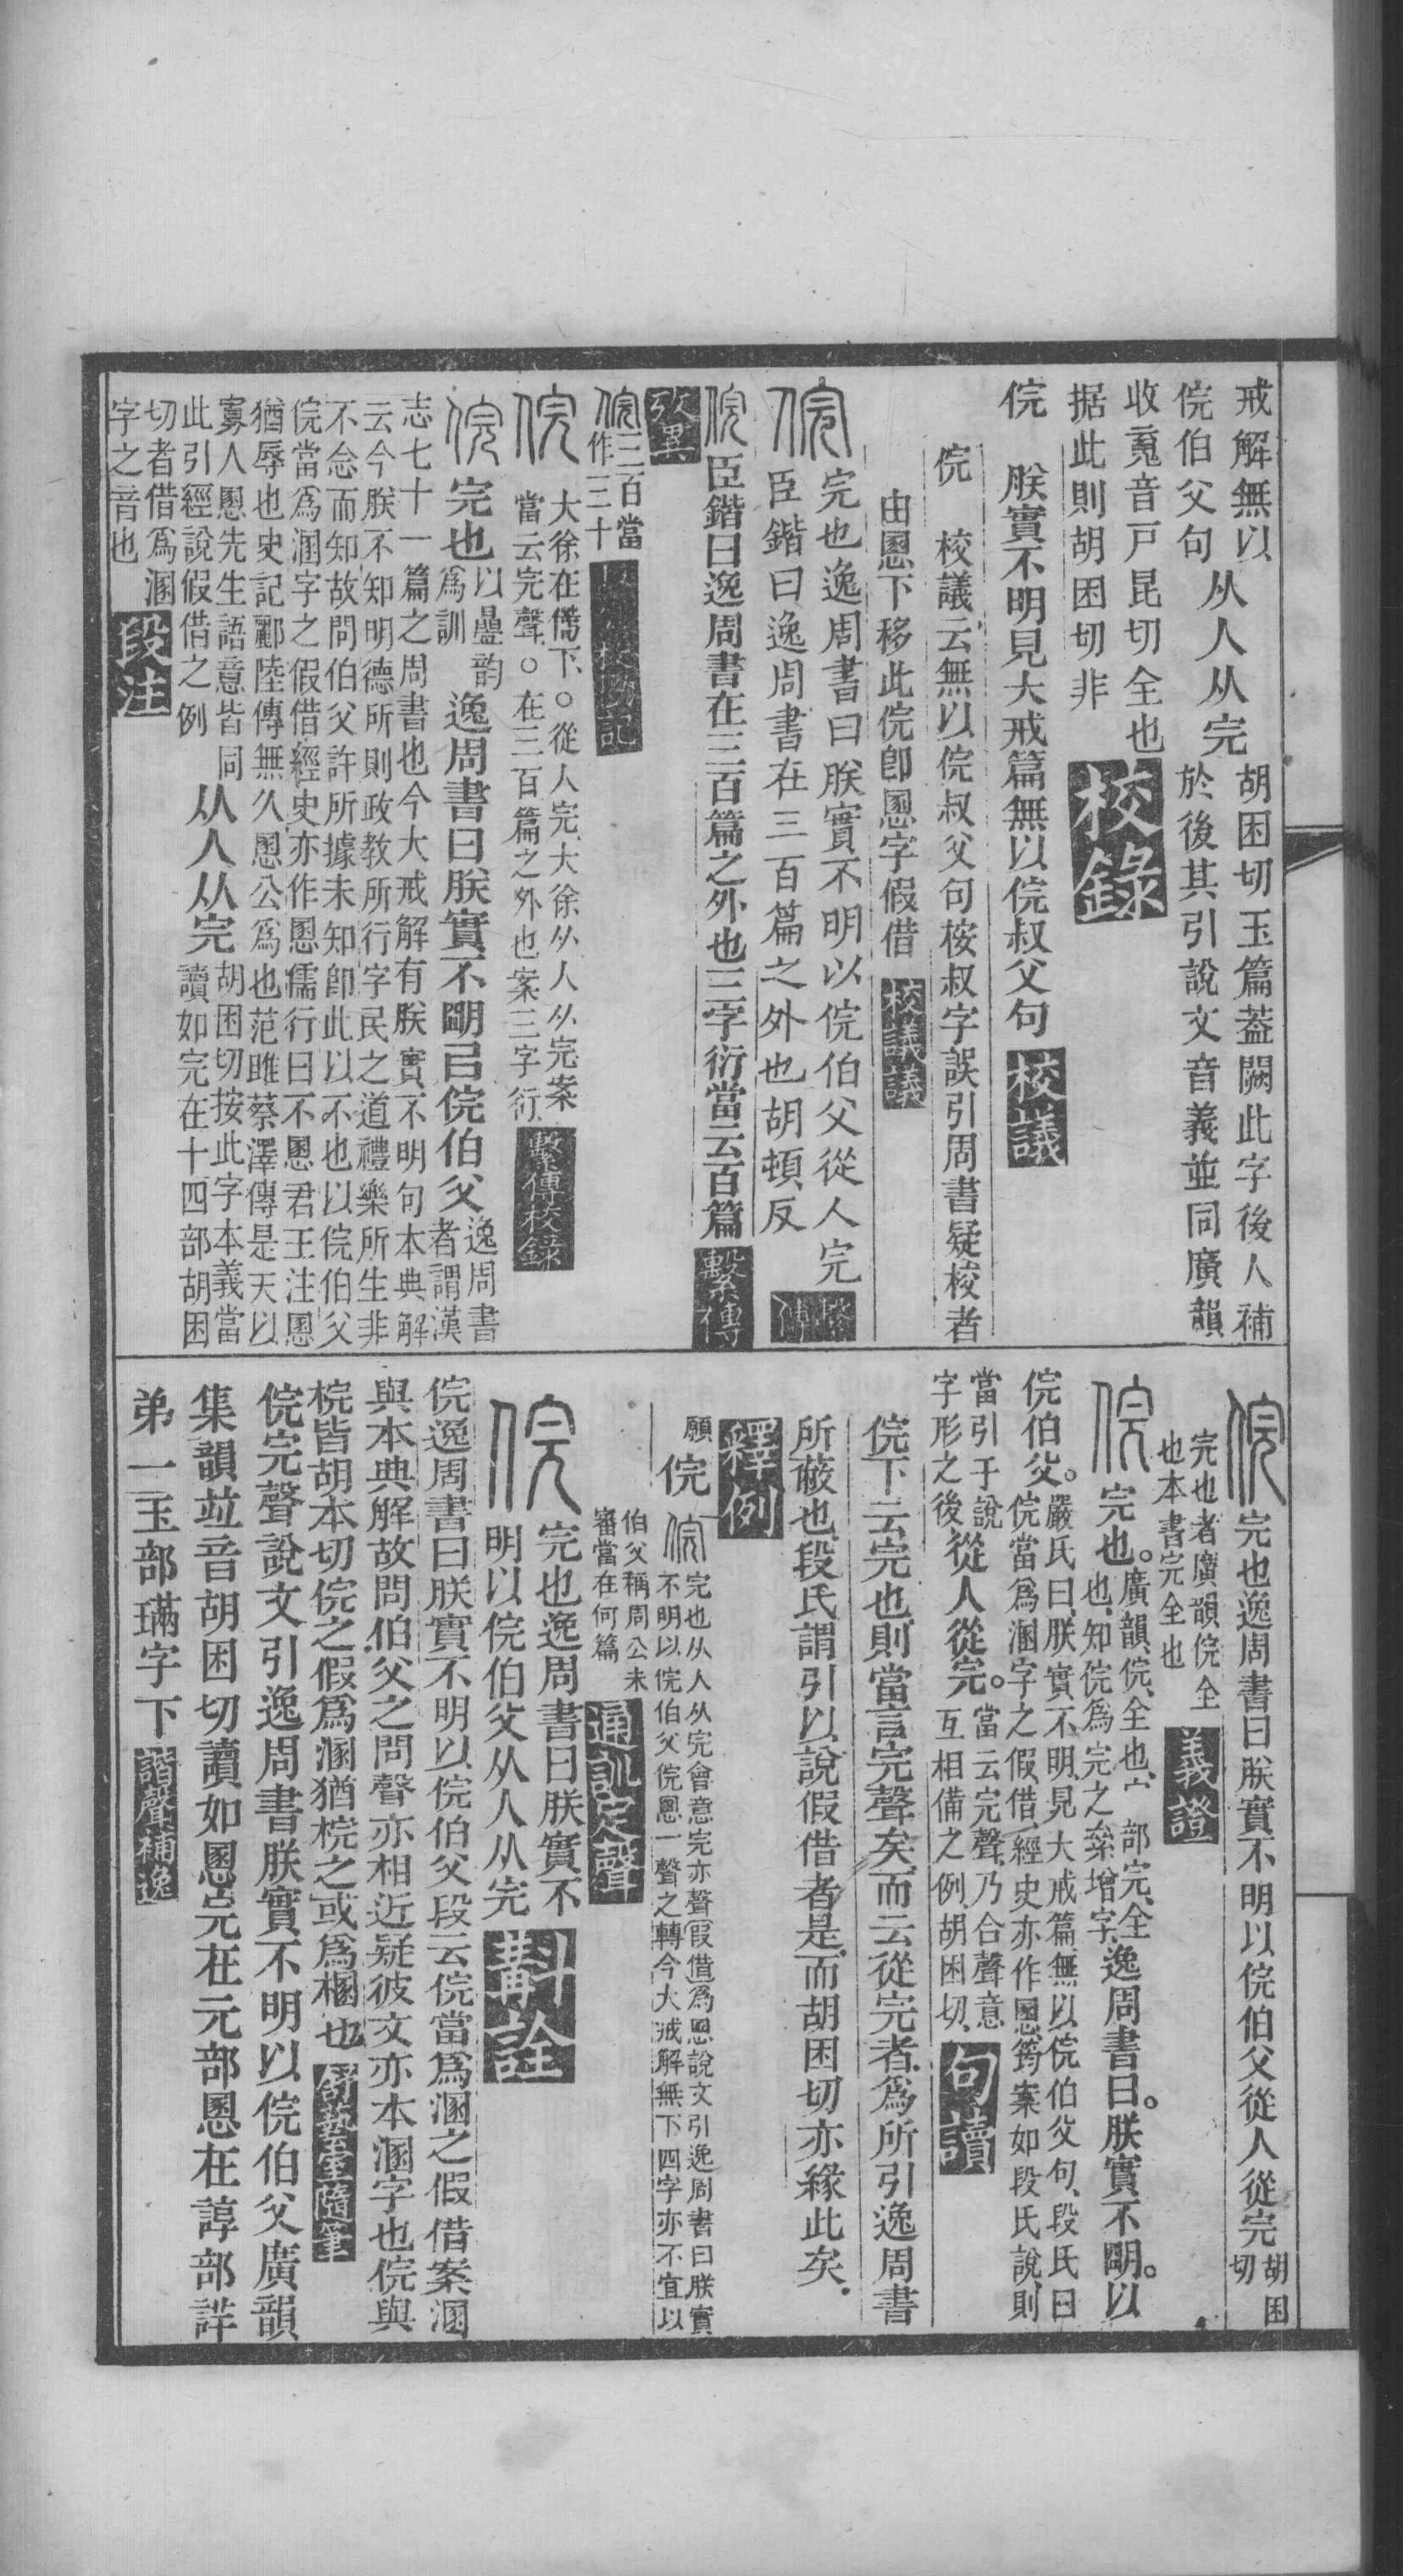 戒解無以
俒伯父句从人从完胡困切玉篇葢闕此字後人補
收䰟音戸昆切全也於後其引說文音義並同廣韻
据此則胡困切非
校錄
俒 朕實不明見大戒篇無以俒叔父句
校議
俒 校議云無以俒叔父句桉叔字誤引周書疑校者
由慁下移此俒卽慁字假借
校議議
俒完也逸周書曰朕實不明以俒伯父從人完
臣鍇曰逸周書在三百篇之外也胡頓反
繫傳
俒臣鍇曰逸周書在三百篇之外也三字衍當云百篇
繫傳
攷異
俒三百當
作三十
俒大徐在㒞下○從人完大徐从人从完案
當云完聲○在三百篇之外也案三字衍
繫傳校錄
俒完也以曡韵
爲訓逸周書曰朕實不朙㠯俒伯父逸周書
者謂漢
志七十一篇之周書也今大戒解有朕實不明句本典解
云今朕不知明德所則政教所行字民之道禮樂所生非
不念而知故問伯父許所據未知卽此以不也以俒伯父
俒當爲溷字之假借經史亦作慁儒行曰不慁君王注慁
猶辱也史記酈陸傳無久慁公爲也范雎蔡澤傳是天以
寡人慁先生語意皆同
此引經說假借之例从人从完胡困切按此字本義當
讀如完在十四部胡困
切者借爲溷
字之音也
段注
俒完也逸周書曰朕實不明以俒伯父從人從完胡困
切
完也者廣韻俒全
也本書完全也
義證
俒完也。廣韻俒全也宀部完全
也知俒爲完之絫增字逸周書曰。朕實不朙。以
俒伯父。嚴氏曰朕實不明見大戒篇無以俒伯父句段氏曰
俒當爲溷字之假借經史亦作慁筠案如段氏說則
當引于說
字形之後從人從完。當云完聲乃合聲意
互相備之例胡困切
句讀
俒下云完也則當言完聲矣而云從完者爲所引逸周書
所蔽也段氏謂引以說假借者是而胡困切亦緣此矣
釋例
願俒
俒完也从人从完會意完亦聲假借爲慁說文引逸周書曰朕實
不明以俒伯父俒慁一聲之轉今大戒解無下四字亦不宜以
伯父稱周公未
審當在何篇
通訓定聲
俒完也逸周書曰朕實不
明以俒伯父从人从完
斠詮
俒逸周書曰朕實不明以俒伯父段云俒當爲溷之假借案溷
與本典解故問伯父之問聲亦相近疑彼文亦本溷字也俒與
梡皆胡本切俒之假爲溷猶梡之或爲棞也
舒蓺室隨筆
俒完聲說文引逸周書朕實不明以俒伯父廣韻
集韻竝音胡困切讀如慁完在元部慁在諄部詳
弟一玉部璊字下
諧聲補逸